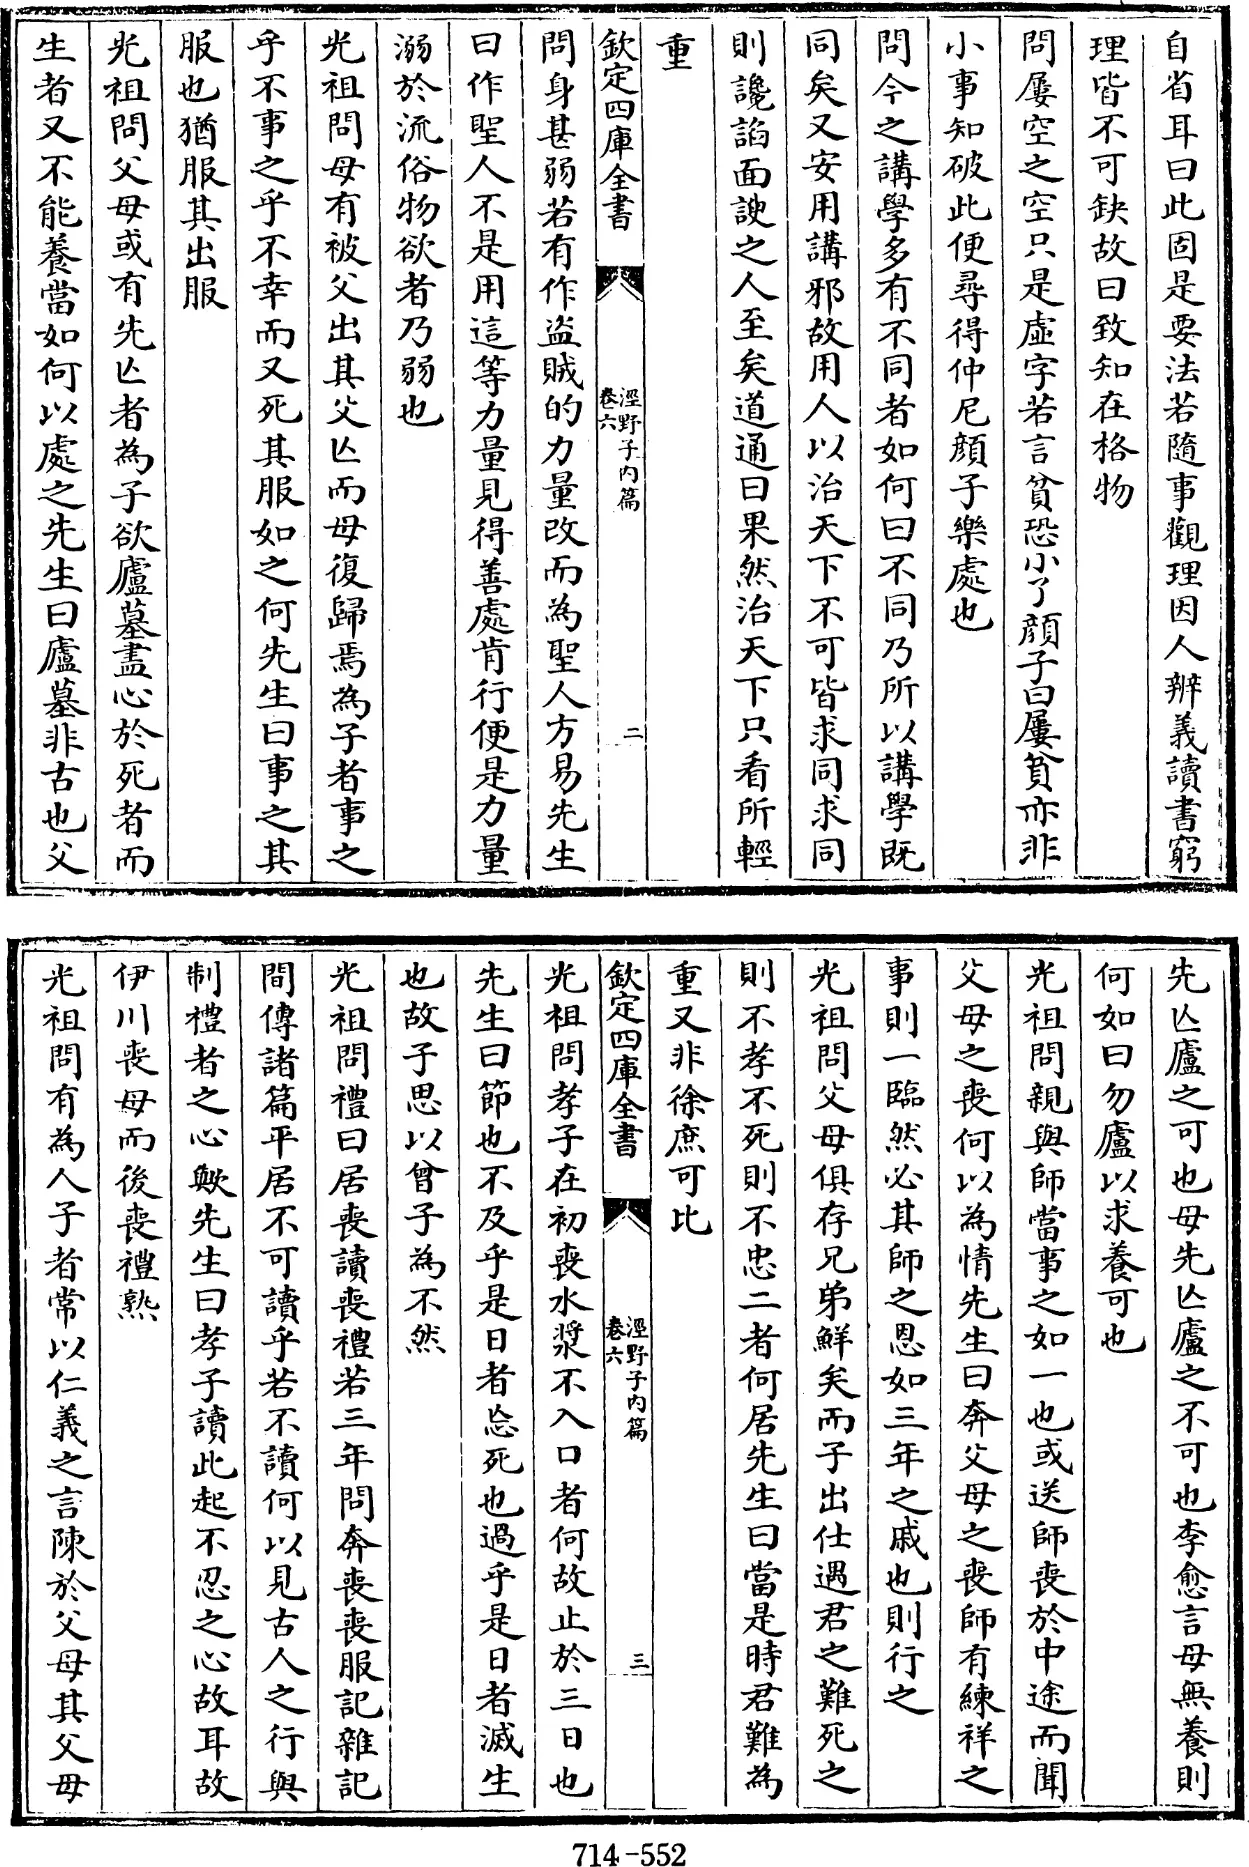 自省耳曰此固是要法若隨事觀理因人辨義讀書窮
理皆不可缺故曰致知在格物
問屢空之空只是虛字若言貧恐小了顔子曰屢貧亦非
小事知破此便尋得仲尼顔子樂處也
問今之講學多有不同者如何曰不同乃所以講學既
同矣又安用講邪故用人以治天下不可皆求同求同
則讒謟面諛之人至矣道通曰果然治天下只看所輕
重
欽定四庫全書
涇野子內篇
卷六
二
問身甚弱若有作盜賊的力量改而為聖人方易先生
曰作聖人不是用這等力量見得善處肯行便是力量
溺於流俗物欲者乃弱也
光祖問母有被父出其父亡而母復歸焉為子者事之
乎不事之乎不幸而又死其服如之何先生曰事之其
服也猶服其出服
光祖問父母或有先亡者為子欲廬墓盡心於死者而
生者又不能養當如何以處之先生曰廬墓非古也父
先亡廬之可也母先亡廬之不可也李愈言母無養則
何如曰勿廬以求養可也
光祖問親與師當事之如一也或送師喪於中途而聞
父母之喪何以為情先生曰奔父母之喪師有練祥之
事則一臨然必其師之恩如三年之戚也則行之
光祖問父母俱存兄弟鮮矣而子出仕遇君之難死之
則不孝不死則不忠二者何居先生曰當是時君難為
重又非徐庶可比
欽定四庫全書
涇野子內篇
卷六
三
光祖問孝子在初喪水漿不入口者何故止於三日也
先生曰節也不及乎是日者忘死也過乎是日者滅生
也故子思以曾子為不然
光祖問禮曰居喪讀喪禮若三年問奔喪喪服記雜記
間傳諸篇平居不可讀乎若不讀何以見古人之行與
制禮者之心歟先生曰孝子讀此起不忍之心故耳故
伊川喪母而後喪禮熟
光祖問有為人子者常以仁義之言陳於父母其父母
714-552